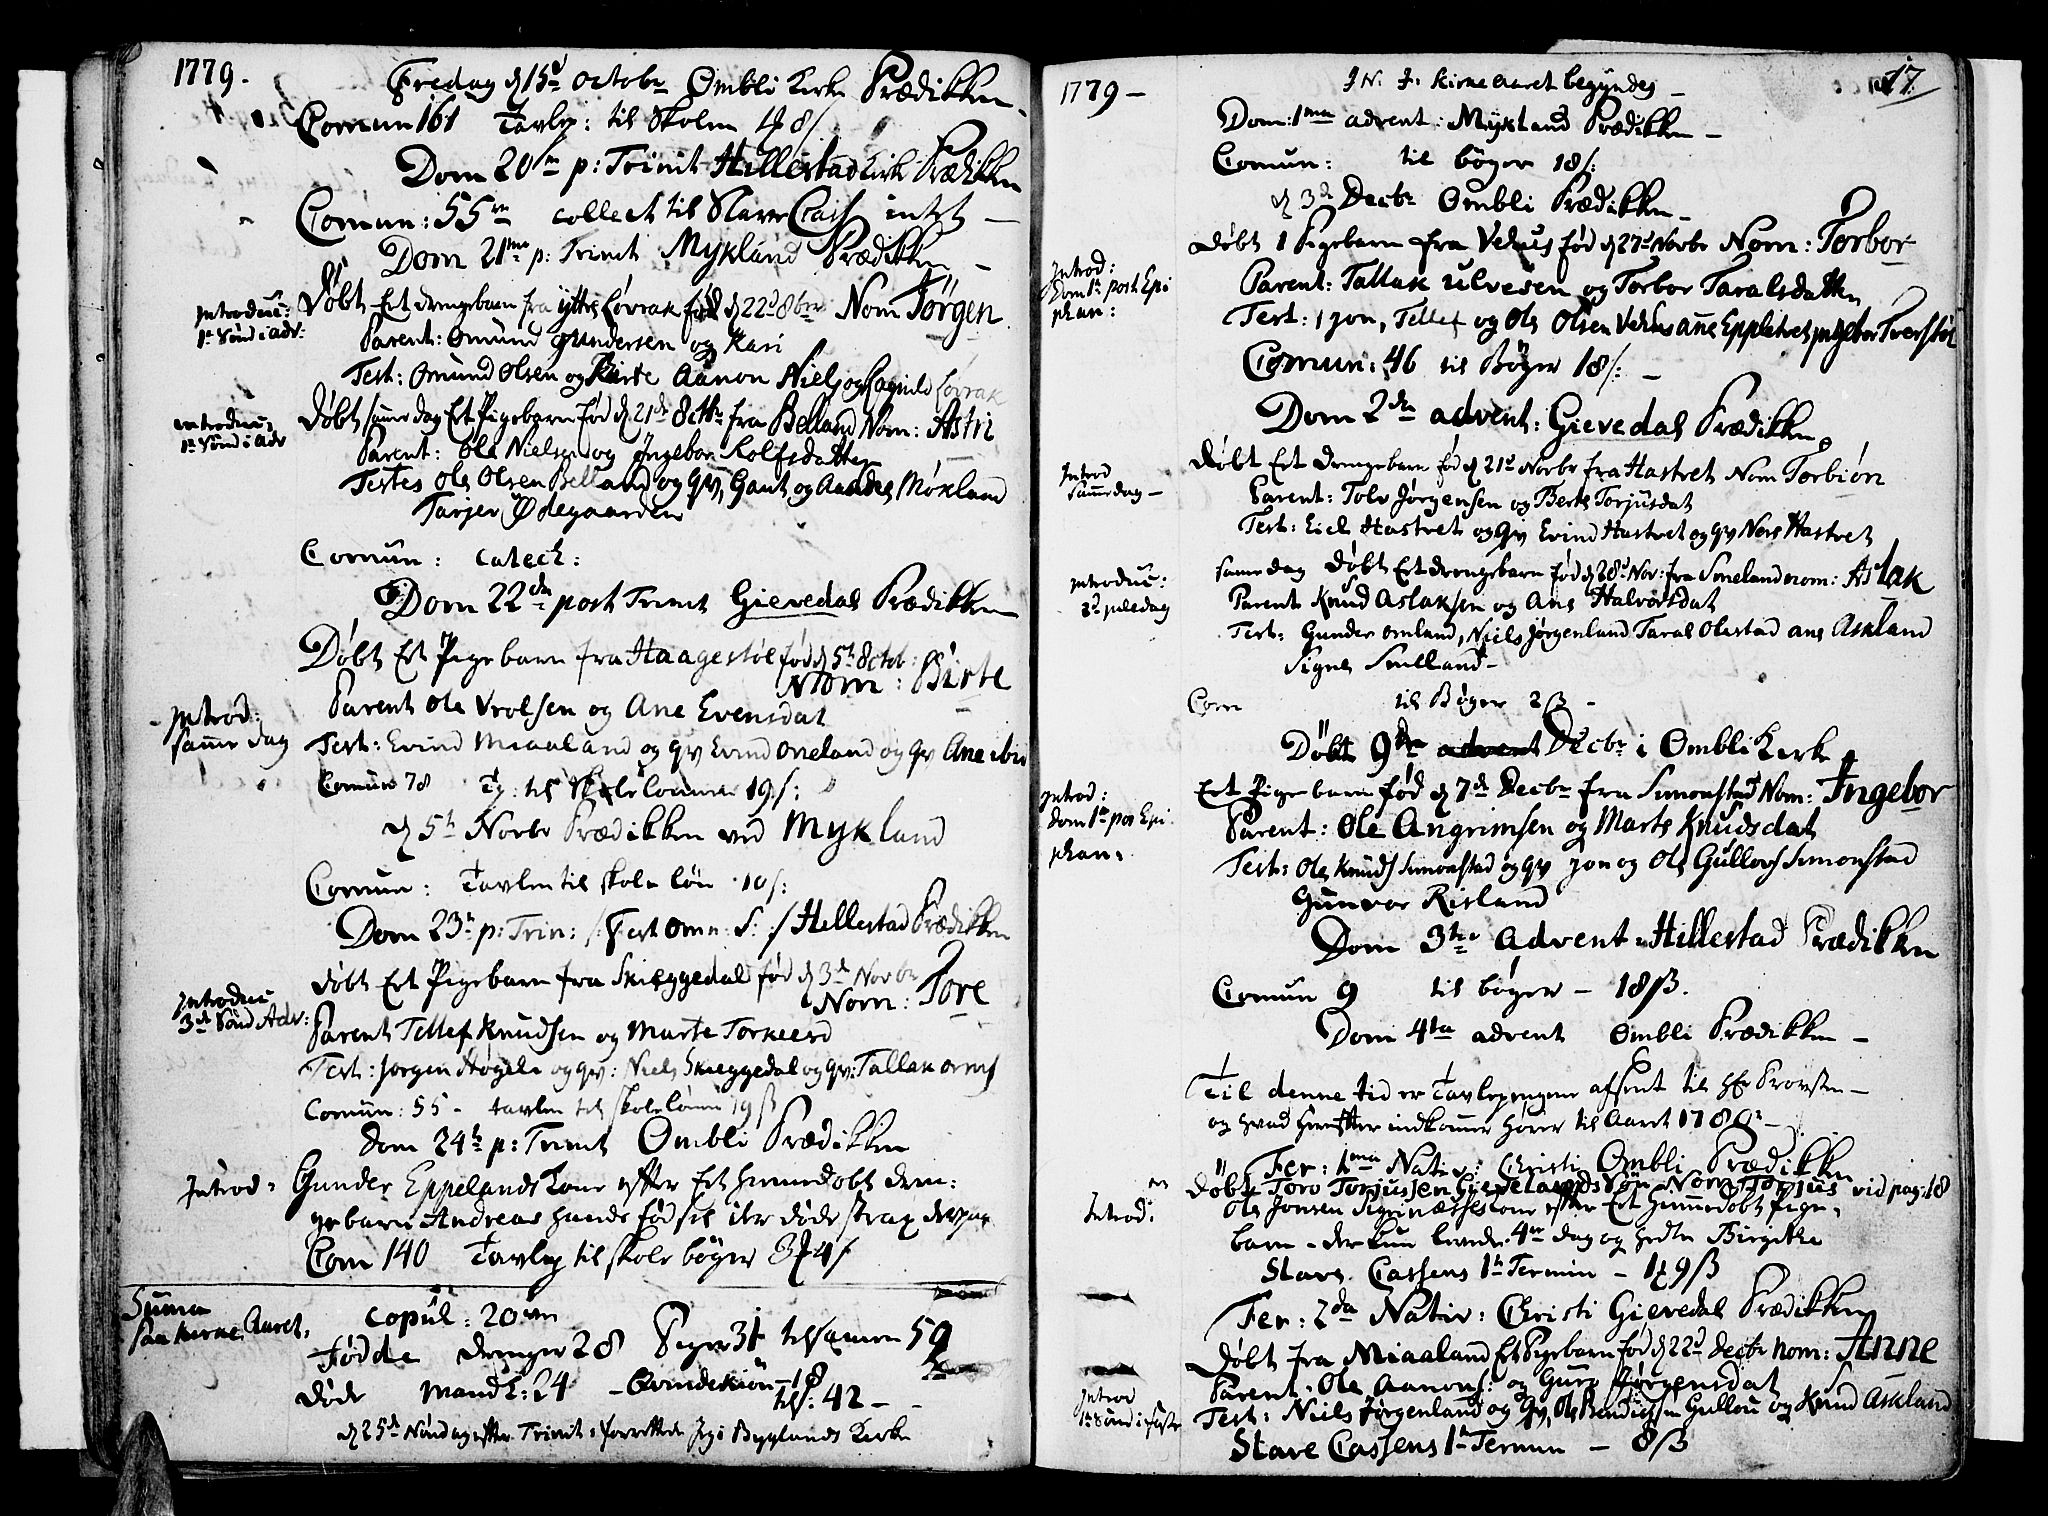 1779.
Fredag d 15d octobr Ombli Kirke Prædikken
Comun 161 Tavlep: til Skolen 4 8/
Dom 20m p: Trinit Hillestad Kirke Prædikken
Comun: 55m collect til Slave Cass intet —
Dom 21ma p: Trinit Mykland Prædikken —
Introduc: 1te Sønd i Adv:
Døbt Et drengebarn fra yttre Løvrak fød d 22d 8br Nom Jørgen
Parent: Omund Gundersen og Kari
Test: Omund Olsen og Birte Aanon Niels og Løvrak
Introduc: 1te Sønd i Adv
Døbt samme dag Et Pigebarn fød d 21d 8tbr fra Belland Nom: Astri
Parent: Ole Nielsen og Ingebor Rolfsdatter
Testes Ole Olsen Belland og qv, Gaut og Aandes Møkland
Tarjer Ødegaarden
Comun: catech:
Dom 22da post Trinit Gievedal Prædikken
Døbt Et Pigebarn fra Haagestøl fød d 5t 8ctob:
Nom: Birte
Introd: samme dag
Parent Ole Vrolsen og Ane Evensdat
Test: Evind Miaaland og qv Evind Oneland og qv Ane ibid
Comun 78 T: til Skolelønnen 19/:
d 5t Novbr Prædikken ved Mykland
Comun: Tavlen til skole løn 10/:
Dom 23te p: Trin: /: Fest Omn: S: :/ Hellestad Prædikken
Døbt Et Pigebarn fra Skieggedal fød d 3d Novbr
Nom: Tore
Introduc 3de Sønd Adv:
Parent Tellef Knudsen og Marte Torkeers
Test: Jørgen Høgeli og qv: Niels Skieggedal og qv: Tallak
Comun: 55 - tavlen til skolelønn 19 ß
Dom 24te p: Trinit Ombli Prædikken
Introd: Gunder Eppelands Kone efter Et hiemedøbt dren:
gebarn Andreas hendes fødsel der døde strax derpaa
Com 140 Tavlep til skole bøger 3 4/
Summa paa Kirke Aaret.
Copul: 20
Fødde drenger 28 Piger 31 tilsamen 59
Døde Mandk: 24 - Qvindekiøn - 18
til: 42 -
d 25d Søndag efter Trinit: forrettede jeg i Byglands Kirke
1779 —
17.
J N. J: Kirke Aaret begyndes —
Dom: 1ma advent: Mykland Prædikken —
Comun: til bøger 18/:
d 3d Decbr Ombli Prædikken —
Introd: Dom 1te post Epi
phan:
Døbt 1 Pigebarn fra Vehus fød d 27d Novbr Nom: Torbor
Parent: Tallak Ulvesen og Torbor Taralsdatter
Test: Jon, Tellef og Ole Olsen Vehus Ane Eppliteit Ingebor Tverstøl
Comun: 46 til Bøger 18/: —
Dom 2da advent: Gievedal Prædikken
Introd samme dag —
Døbt Et drengebarn fød d 21d Novbr fra Hastvet Nom Torbiøn
Parent: Tolv Jørgensen og Berte Torjusdat
Test: Eiel Hastvet og qv Evind Hastvet og qv Ners Hastvet
Introduc: 2d juledag
samme dag Døbt Et drengebarn fød d 28d Nov: fra Smeland nom: Aslak
Parent Knud Aslaksen og Ane Halvorsdat
Test: Gunder Omland, Niels Jørgenland Taral Olestad Ane Askland
Signe Smelland —
Com til Bøger 2 ß -
Døbt 9de Decbr i Ombli Kirke
Introd: Dom 1te pos Epi
phan:
Et Pigebarn fød d 7d Decbr fra Simonstad Nom: Ingebor
Parent: Ole Angrimsen og Marte Knudsdat
Test: Ole Knuds Simonstad og qv Jon og Ole Gullovs Simonstad
Gunvor Risland
Dom 3tia Advent Hillestad Prædikken
Comun 9 til bøger — 18 ß.
Dom 4ta advent Ombli Prædikken —
Til denne tid er Tavlepengene afsent til Hr Provsten —
og hvad herefter indkommer hører til Aaret 1780: —
Fer: 1ma Nativ: Christi Ombli Prædikken
Døbt Toro Torjussen Gievelands Søn Nom Torjus vid pag: 18
Introd: Ole Jonsen Sigrinæsses kone efter Et hiemedøbt Pige:
barn - der kun levede 4re dag og hedte Birgithe
Slave Cassens 1te Termin — 1 9 ß
Fer: 2da Nativ: Christi Gievedal Prædikken
Døbt fra Miaaland Et Pigebarn fød d 22d Decbr nom: Anne
Introd 1te Sønd i faste
Parent: Ole Aanons: og Guro Jørgensdat
Test: Niels Jørgenland og qv, Ole Bendixsen Gullov og Knud Askland
Slave Cassens 1te Termin — 8 ß